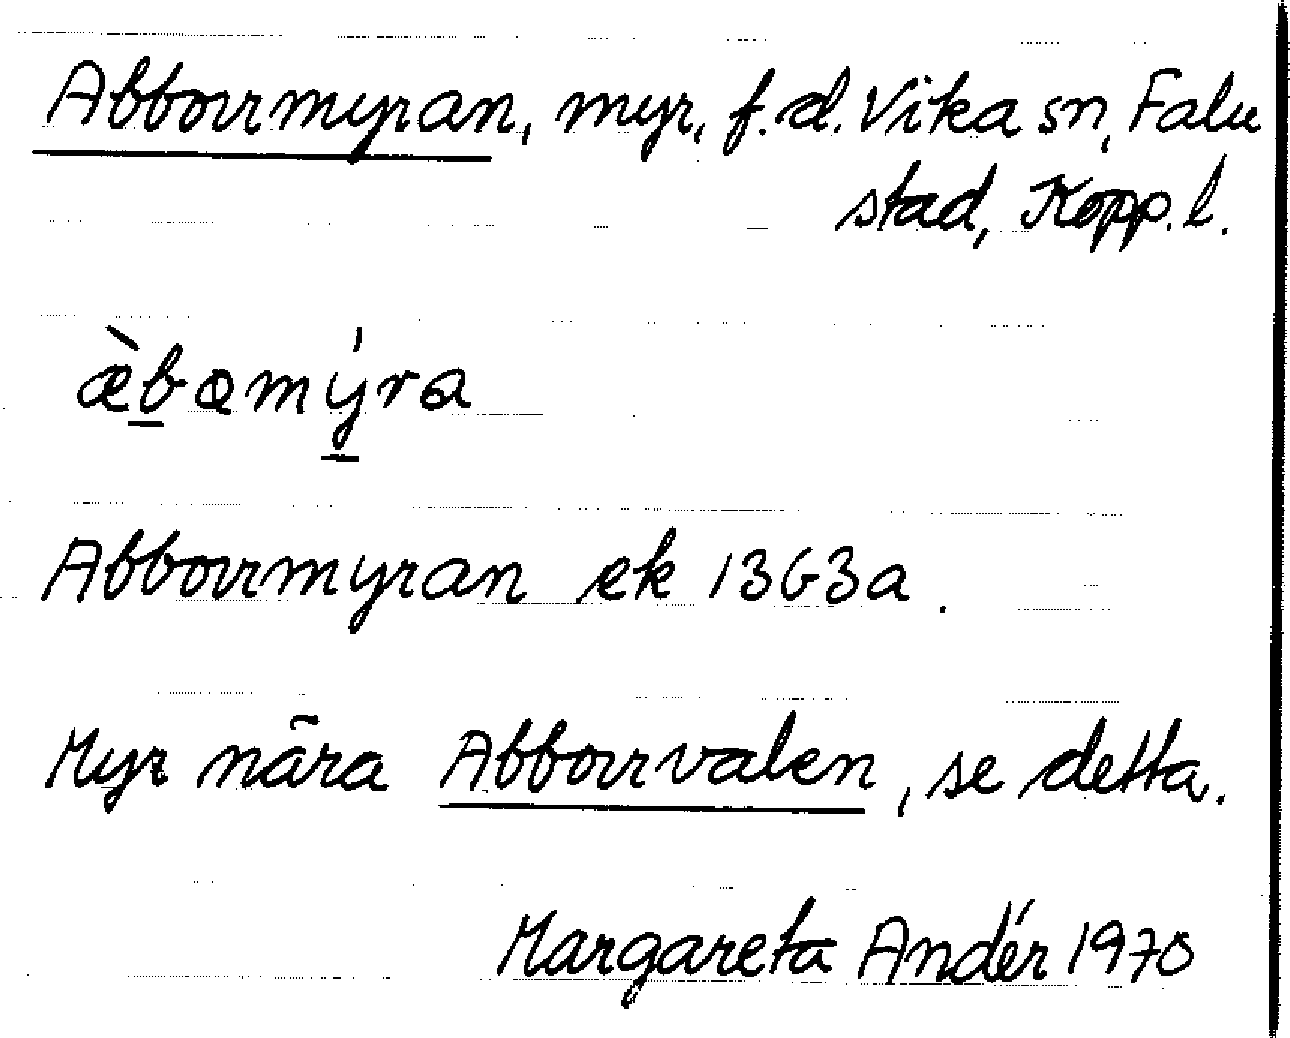 Abborrmyran, myr, f.d. Vika sn, Falu
stad, Kopp. l.
æ̀b̲ɷmý̲ra
Abborrmyran ek 13G3a.
Myr nära Abborrvalen, se detta.
Margareta Andér 1970